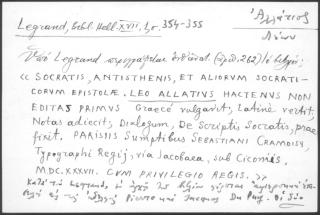 Legrand, Bibl. Hell. XVII, 1, σ. 354-355
Ἀλλάτιος
Λέων
Ὑπὸ Legrand περιγράφεται (ἀρ. 262) τὸ βιβλίο
« SOCRATIS, ANTISTHENIS, ET ALIORUM SOCRATI-
CORUM EPISTOLÆ. LEO ALLATIUS HACTENUS NON
EDITAS PRIMUS Graecè vulgavit, Latinè vertit,
Notas adiecit, Dialogum, De Scriptis Socratis, prae
fixit. PARISIIS Sumptibus SEBASTIANI CRAMOISY,
Typographi Regij, via Jacobaea, sub Ciconiis,
M.DC.XXXVII. CVM PRIVILEGIO REGIS. »
Κατὰ τὸν Legrand, τὸ βιβλίο
Du Puy.